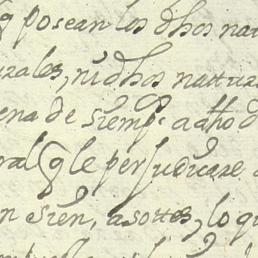 q posean los dhos nat
urales, ni dhos nattura
ena de siempe. a dho
ral q le perjudicare
n sien, asottes, lo q